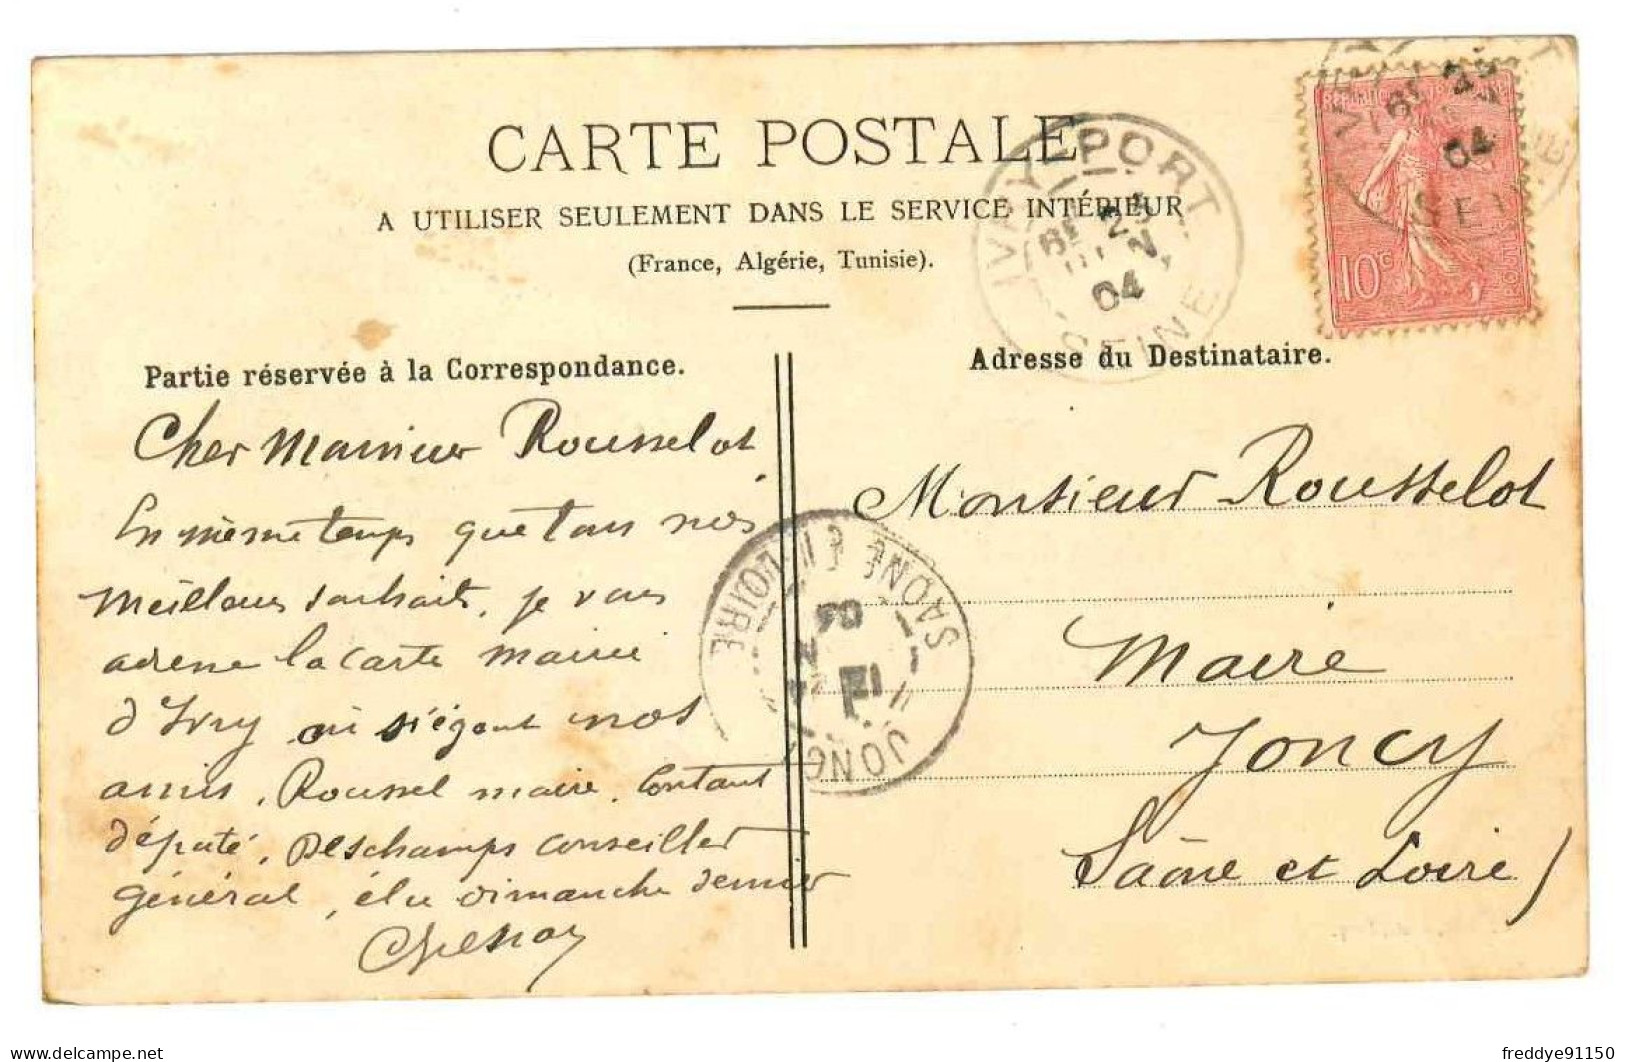 CARTE POSTALE
A UTILISER SEULEMENT DANS LE SERVICE INTÉRIEUR
(France, Algérie, Tunisie).
IVRY-PORT
04
SEINE
10c
04
Partie réservée à la Correspondance.
Cher Monsieur Rousselot
En même temps que tous nos
meilleurs souhaits, je vous
adresse la carte mairie
d'Ivry où siégent nos
amis. Roussel maire. Coutant
député. Deschamps conseiller
général, élu dimanche dernier
Adresse du Destinataire.
Monsieur Rousselot
Maire
Joncy
Saône et Loire)
SAONE ET LOIRE
04
JONCY
freddye91150